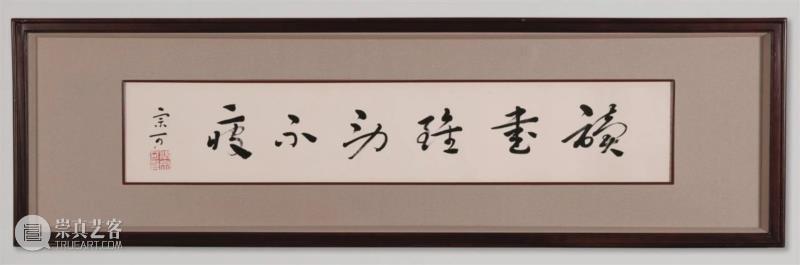 讀書雖勤不疲
宗可
崇真艺客
TRUEART.COM